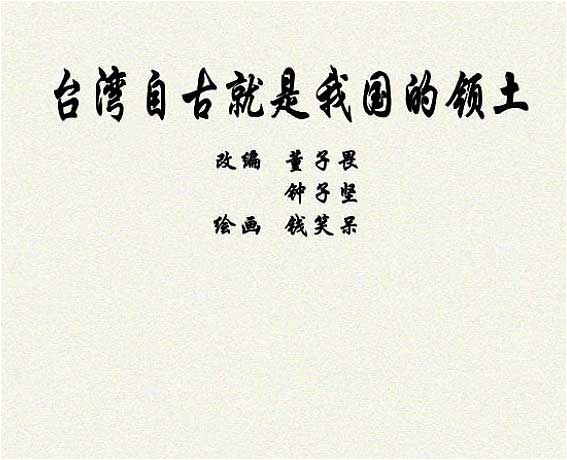 台湾自古就是我国的领土
改编 董子畏
钟子坚
绘画 钱笑呆